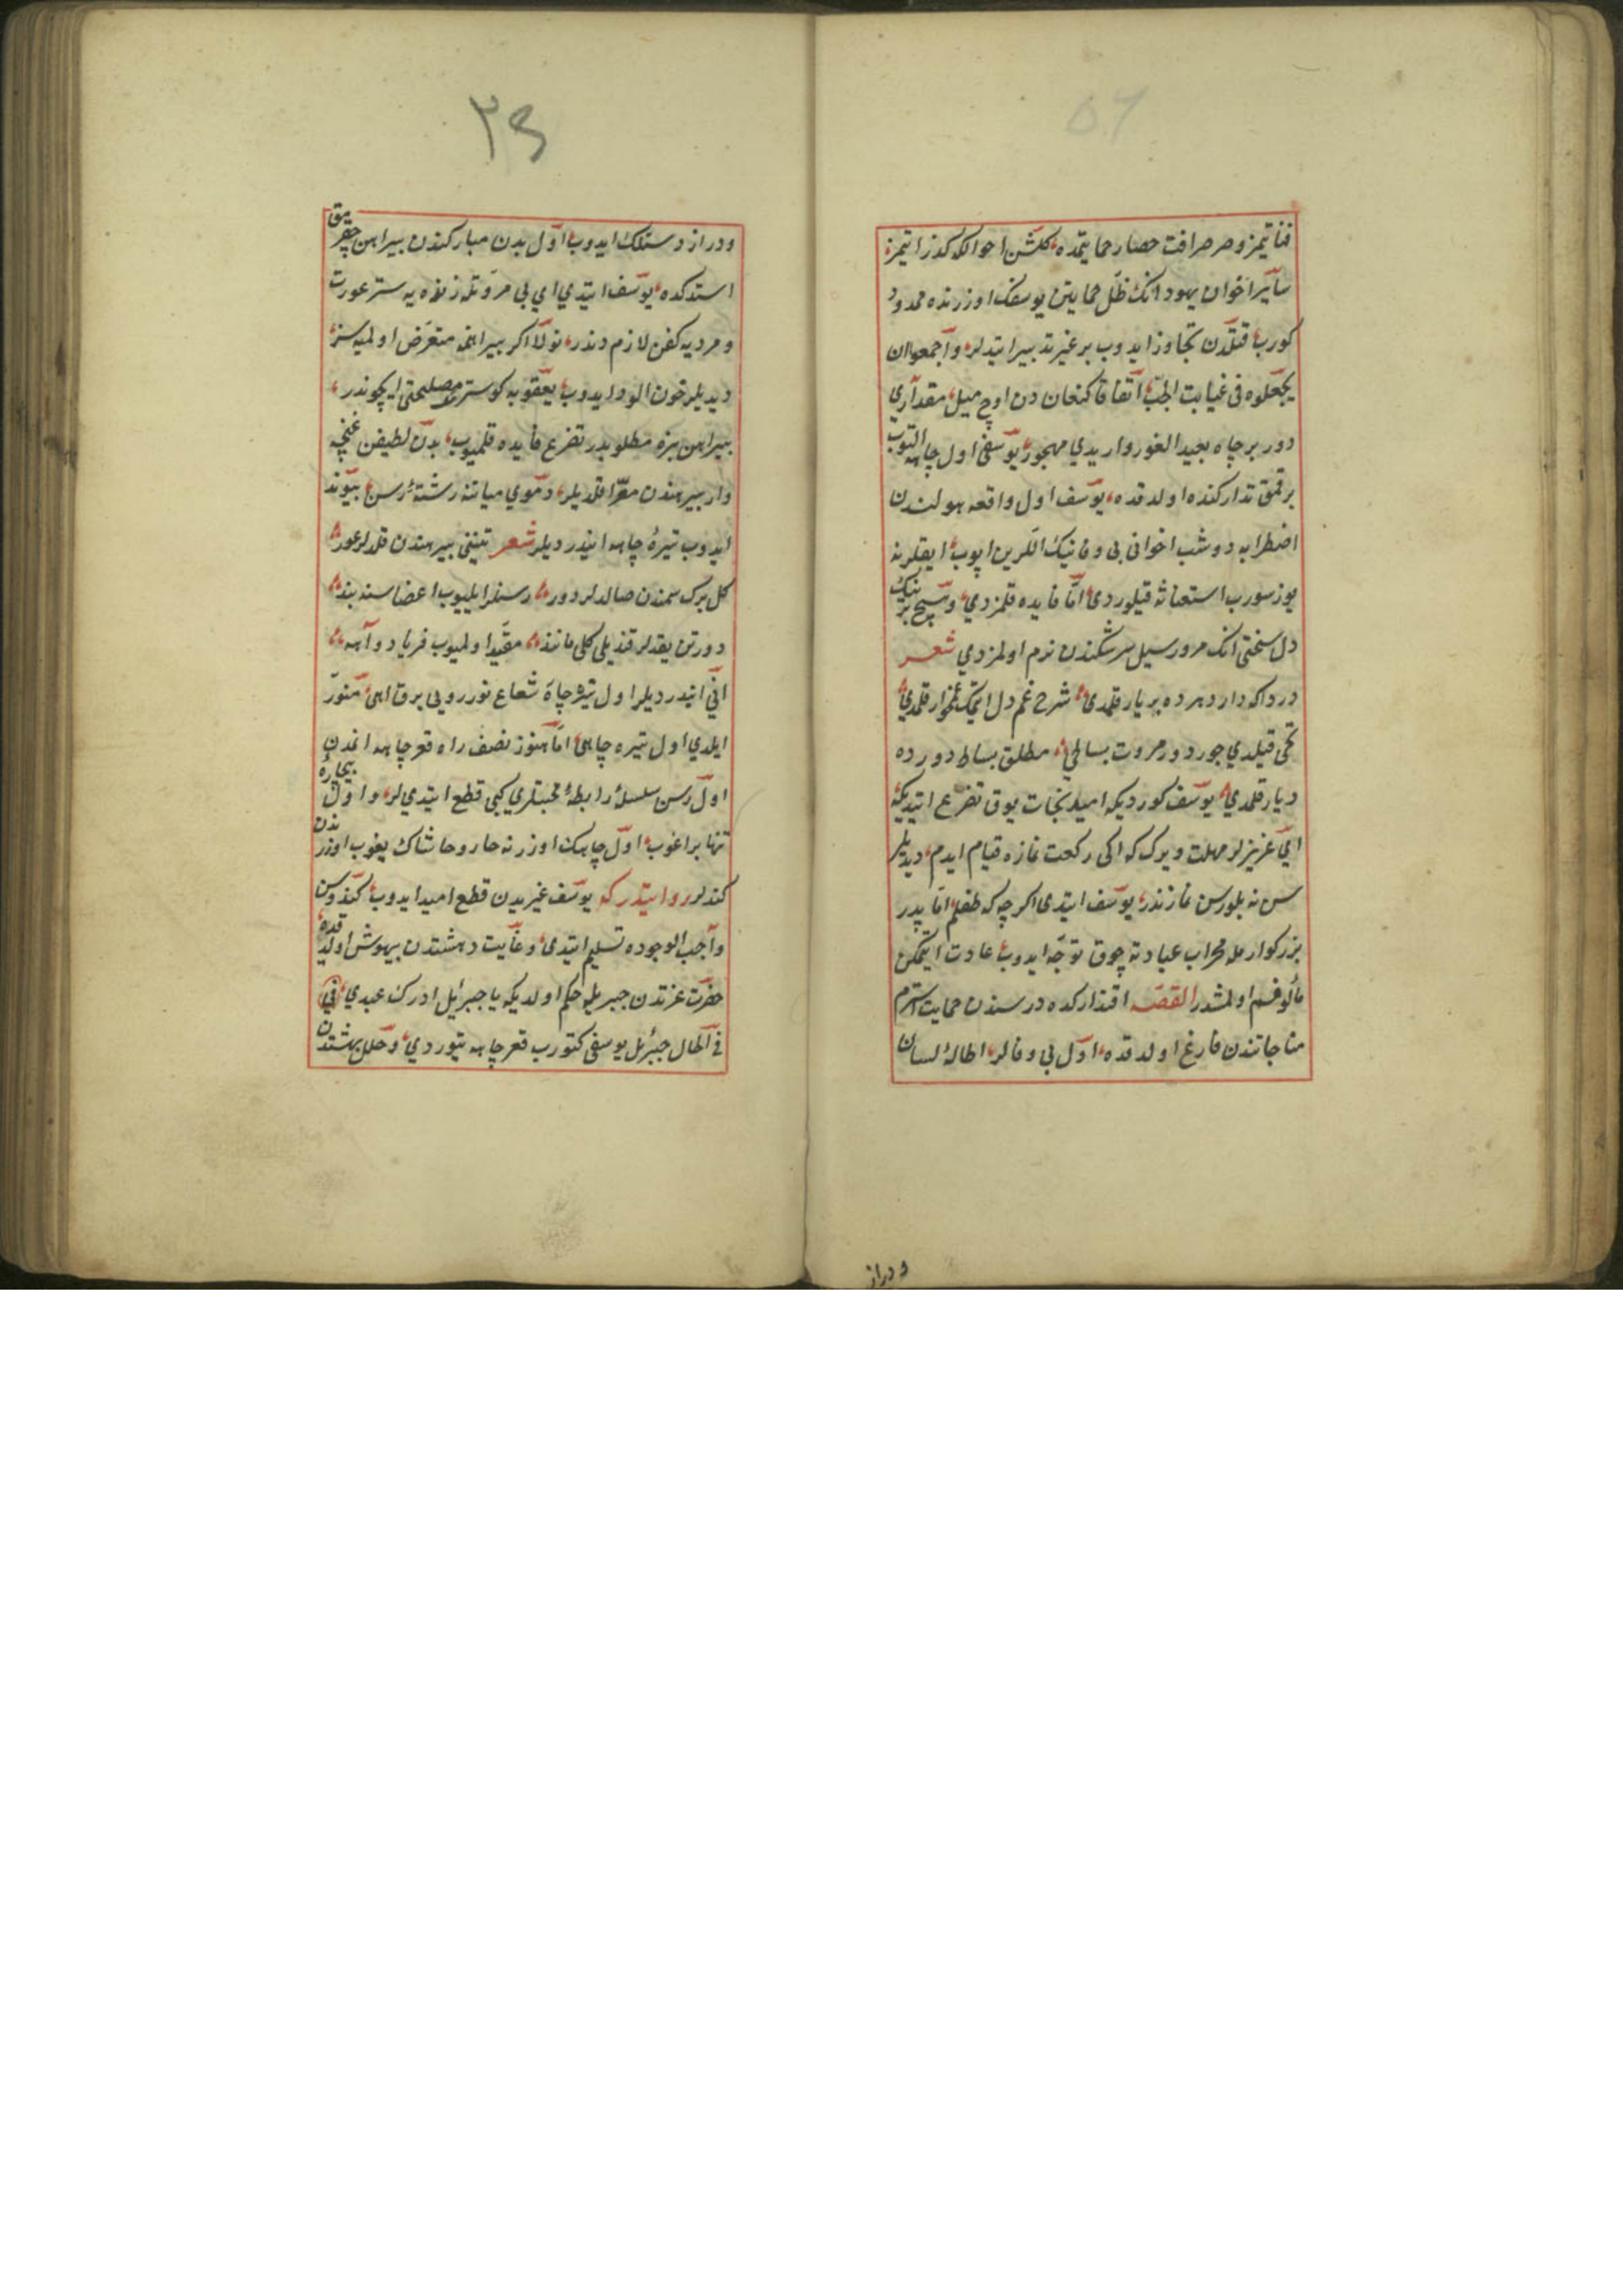 فنا یتمز و صرصر افت حصار حمایتمده کلشن احوالکه کذر ایتمز
سایر اخوان یهودانک ظل حمایتن یوسفک اوزرنده ممدود
کورب قتلدن تجاوز ایدوب بر غیر تدبیر ایتدلر و اجمعوا ان
یجعلوه فی غیابت الجب اتفاقا کنعان دن اوچ میل مقداری
دور بر چاه بعید الغور واریدی مهجور یوسفی اول چاهه التوب
برقمق تدارکنده اولدقده یوسف اول واقعه هولندن
اضطرابه دوشب اخوانی بی وفانیک اللرین اپوب ایقلرنه
یوز سورب استغاثه قیلوردی اما فایده قلمزدی و هیچ برینک
دل سختی انک مرور سیل سرشکندن نرم اولمزدی شعر
دردا که دار دهرده بر یار قلمدی شرح غم دل اتمکه غمخوار قلمدی
تحی قیلدی جور دور مروت بساطی مطلق بساط دورده
دیار قلمدی یوسف کوردیکه امید نجات یوق تضرع ایتدیکه
ای عزیزلر مهلت ویرک که اکی رکعت نمازه قیام ایدم دیدیلر
سن نه بلورسن نمازندر یوسف ایتدی اکرچه که طفلم اما پدر
بزرکوارمله محراب عبادته چوق توجه ایدوب عادت ایتمکن
مألوفم اولمشدر القصه اقتدارکده درسندن حمایت استرم
مناجاتندن فارغ اولدقده اول بی وفالر اطالۀ لسان
و دراز
٢٩
و دراز دستلک ایدوب اول بدن مبارکندن بیراهن چقرمق
استدکده یوسف ایتدی ای بی مروتلر زنده یه ستر عورت
و مرده یه کفن لازم دندر نولا اکر بیراهنمه متعرض اولمیه سز
دیدیلر خون الود ایدوب یعقوبه کوسترمک مصلحتی ایچوندر
بیراهن بزه مطلوبدر تضرع فایده قلمیوب بدن لطیفن غنچه
وار بیرهندن معرا قلدیلر و موی میاننه رشتۀ رسن بیوند
ایدوب تیره چاهه ایندردیلر شعر تیننی بیرهندن قلدلر عور
کل برک سمندن صالدلر دور رسنلر ایلیوب اعضاسنه بند
دورتن یقدلر قزیلی کلی مانند مقید اولمیوب فریاد و آهه
انی ایندردیلر اول تیره چاه شعاع نور رویی برق اهی منور
ایلدی اول تیره چاهی اما هنوز نصف راه قعر چاهه انمدن
اول رسن سلسلۀ رابطۀ محبتلری کبی قطع ایتدیلر و اول بیچاره
تنها براغوب اول چاهک اوزرنه خار و خاشاک یغوب اوزرندن
کتدلر روایتدر که یوسف غیریدن قطع امید ایدوب کندوسن
واجب الوجوده تسلیم ایتدی و غایت دهشتدن بیهوش اولدقده
حضرت عزتدن جبریله حکم اولدیکه یا جبرئیل ادرک عبدی
فی الحال جبرئیل یوسفی کتورب قعر چاهه یتوردی و حلل بهشتدن